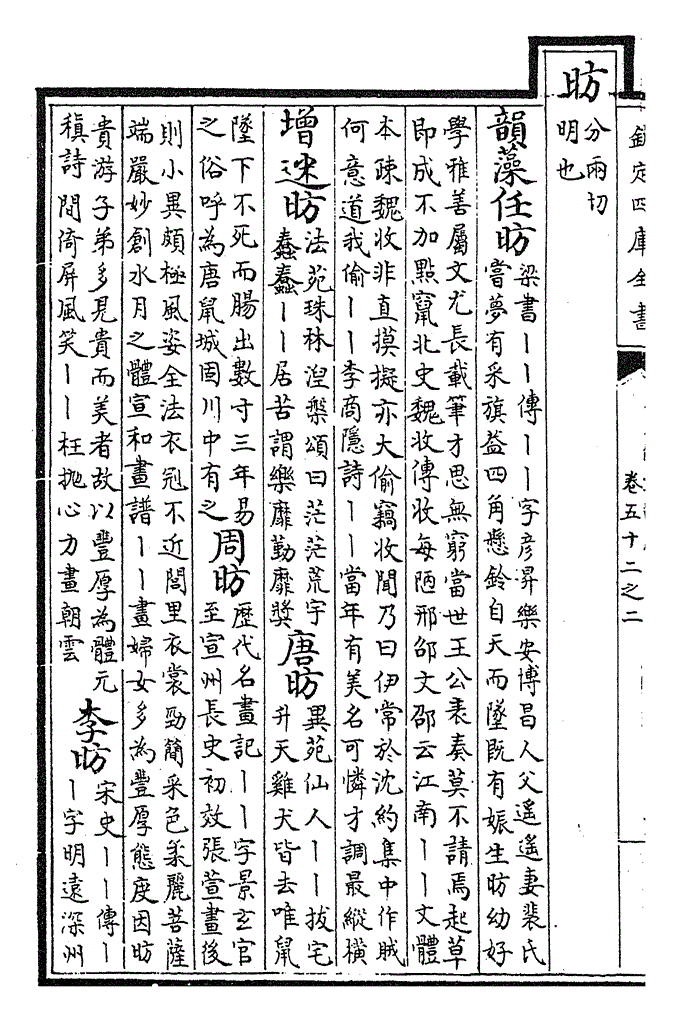 欽定四庫全書
卷五十二之二
昉
分兩切
明也
韻藻任昉
梁書丨丨傳丨丨字彦昇樂安博昌人父遥遥妻裴氏
嘗夢有采旗葢四角懸鈴自天而墜既有娠生昉幼好
學雅善屬文尤長載筆才思無窮當世王公表奏莫不請焉起草
即成不加點竄北史魏收傳收每陋邢邵文邵云江南丨丨文體
本疎魏收非直摸擬亦大偷竊收聞乃曰伊常於沈約集中作賊
何意道我偷丨丨李商隱詩丨丨當年有美名可憐才調最縱橫
增迷昉
法苑珠林湼槃頌曰茫茫荒宇
蠢蠢丨丨居苦謂樂靡勤靡奬
唐昉
異苑仙人丨丨拔宅
升天雞犬皆去唯鼠
墜下不死而腸出數寸三年易
之俗呼為唐鼠城固川中有之
周昉
歴代名畫記丨丨字景玄官
至宣州長史初效張萱畫後
則小異頗極風姿全法衣冠不近閭里衣裳勁簡采色柔麗菩薩
端嚴妙創水月之體宣和畫譜丨丨畫婦女多為豐厚態度因昉
貴游子弟多見貴而美者故以豐厚為體元
稹詩間倚屏風笑丨丨枉抛心力畫朝雲
李昉
宋史丨丨傳丨
丨字明遠深州